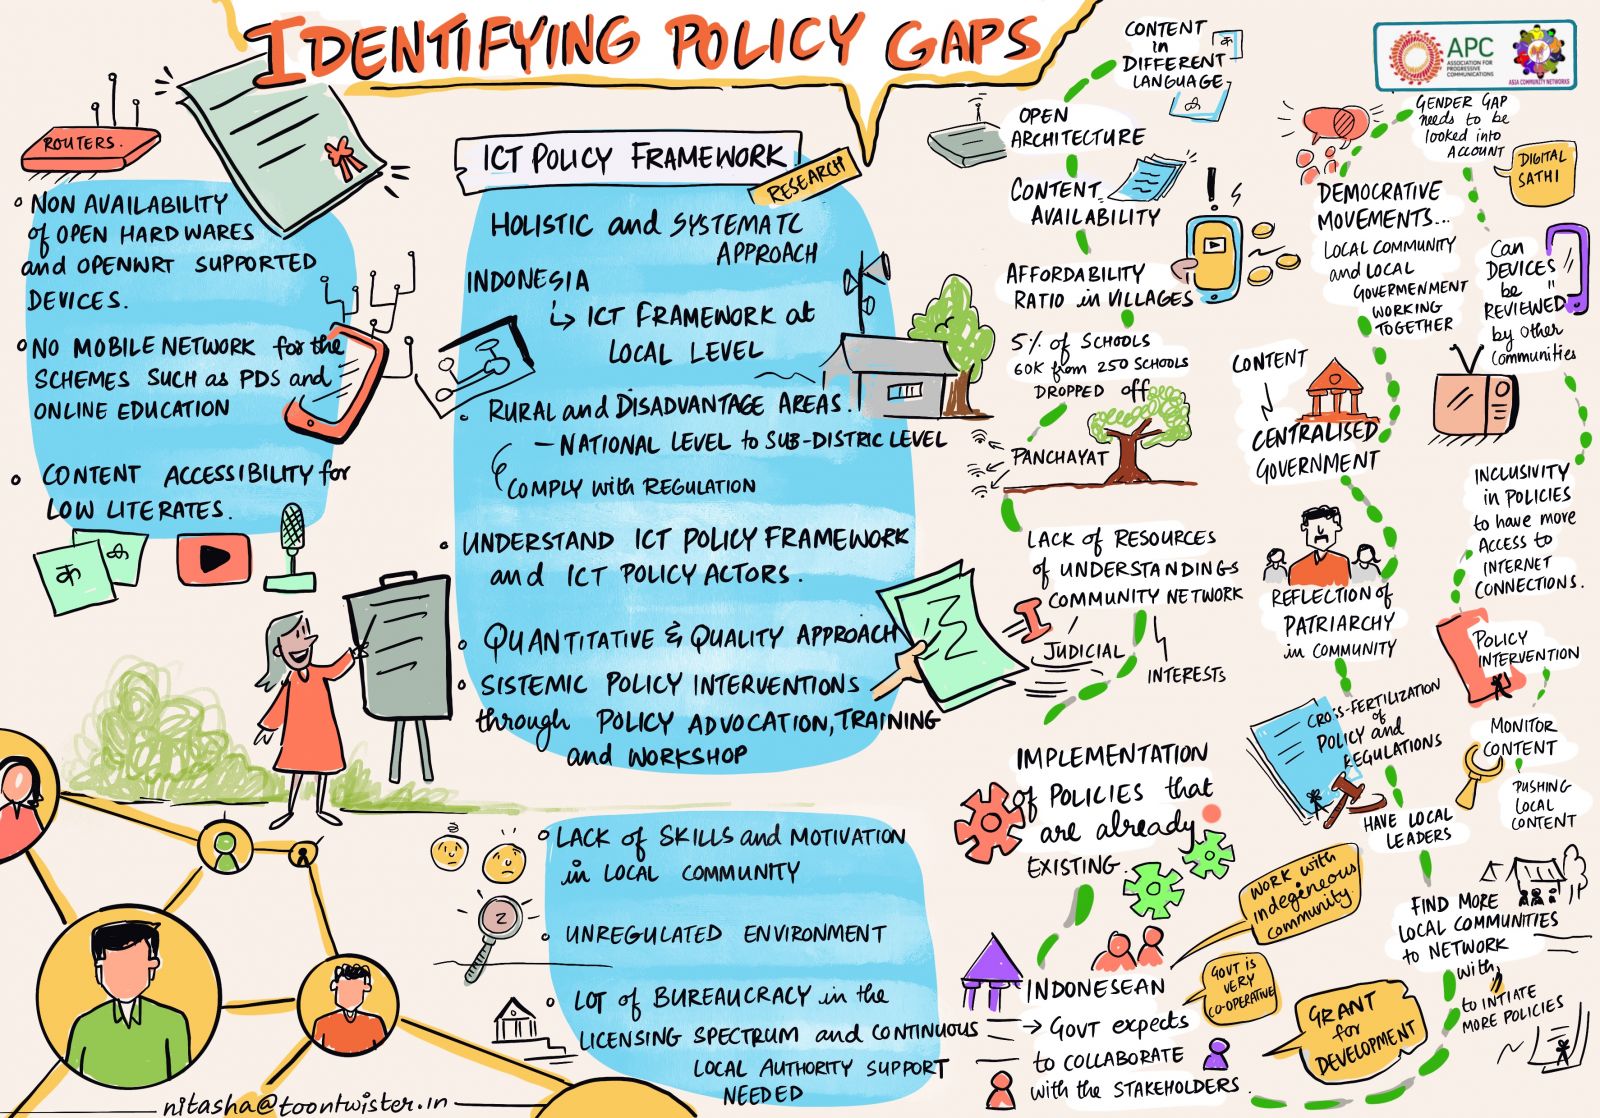 IDENTIFYING POLICY GAPS
APC
ASSOCIATION FOR
PROGRESSIVE
COMMUNICATIONS
ASIA COMMUNITY NETWORKS
ROUTERS.
NON AVAILABILITY
of OPEN HARDWARES
and OPENWRT SUPPORTED
DEVICES.
NO MOBILE NETWORK for the
SCHEMES SUCH as PDS and
ONLINE EDUCATION
CONTENT ACCESSIBILITY for
LOW LITERATES.
क
ICT POLICY FRAMEWORK
RESEARCH
HOLISTIC and SYSTEMATC
APPROACH
INDONESIA
↳ ICT FRAMEWORK at
LOCAL LEVEL
RURAL and DISADVANTAGE AREAS.
– NATIONAL LEVEL to SUB-DISTRIC LEVEL
COMPLY with REGULATION
UNDERSTAND ICT POLICY FRAMEWORK
and ICT POLICY ACTORS.
QUANTITATIVE & QUALITY APPROACH
SISTEMIC POLICY INTERVENTIONS
through POLICY ADVOCATION, TRAINING
and WORKSHOP
LACK of SKILLS and MOTIVATION
in LOCAL COMMUNITY
UNREGULATED ENVIRONMENT
LOT of BUREAUCRACY in the
LICENSING SPECTRUM and CONTINUOUS
LOCAL AUTHORITY SUPPORT
NEEDED
CONTENT
in
DIFFERENT
LANGUAGE
OPEN
ARCHITECTURE
CONTENT
AVAILABILITY
AFFORDABILITY
RATIO in VILLAGES
5% of SCHOOLS
60K from 250 SCHOOLS
DROPPED off
PANCHAYAT
LACK of RESOURCES
of UNDERSTANDINGS
COMMUNITY NETWORK
JUDICIAL
INTERESTS
IMPLEMENTATION
of POLICIES that
are already
EXISTING.
INDONESEAN
→ GOVT expects
to COLLABORATE
with the STAKEHOLDERS.
WORK with
indegeneous
community.
GOVT is
VERY
CO-OPERATIVE
GRANT
for
DEVELOPMENT
GENDER GAP
needs to be
looked into
ACCOUNT
DIGITAL
SATHI
DEMOCRATIVE
MOVEMENTS...
LOCAL COMMUNITY
and LOCAL
GOVERMENMENT
WORKING
TOGETHER
Can
DEVICES
be
REVIEWED
by other
communities
CONTENT
CENTRALISED
GOVERNMENT
INCLUSIVITY
in POLICIES
to have more
ACCESS to
INTERNET
CONNECTIONS.
REFLECTION of
PATRIARCHY
in COMMUNITY
POLICY
INTERVENTION
CROSS-FERTILIZATION
of
POLICY and
REGULATIONS
MONITOR
CONTENT
PUSHING
LOCAL
CONTENT
HAVE LOCAL
LEADERS
FIND MORE
LOCAL COMMUNITIES
to NETWORK
with,
to INTIATE
MORE POLICIES
nitasha@toontwister.in